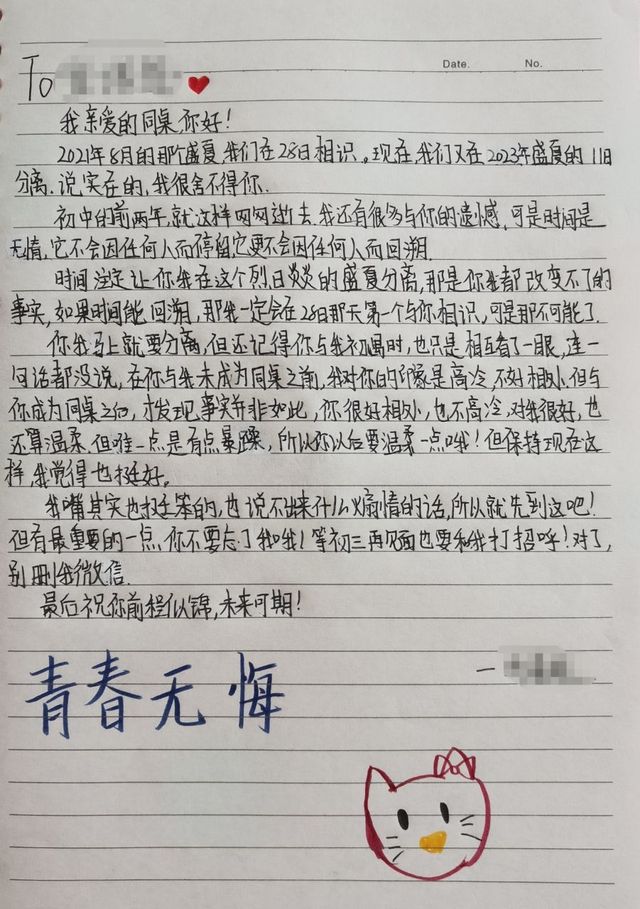 Date.    No.
To
我亲爱的同桌,你好!
2021年8月的那个盛夏,我们在28日相识。现在,我们又在2023年盛夏的11日
分离.说实在的,我很舍不得你.
初中的前两年,就这样匆匆逝去.我还有很多与你的遗憾.可是时间是
无情,它不会因任何人而停留,它更不会因任何人而回溯.
时间注定让你我在这个烈日炎炎的盛夏分离,那是你我都改变不了的
事实,如果时间能回溯,那我一定会在28日那天第一个与你相识,可是那不可能了.
你我马上就要分离,但还记得你与我初遇时,也只是相互看了一眼,连一
句话都没说,在你与我未成为同桌之前,我对你的印象是高冷,不好相处.但与
你成为同桌之后,才发现,事实并非如此,你很好相处,也不高冷,对我很好,也
还算温柔.但唯一点是有点暴躁,所以你以后要温柔一点哦!但保持现在这
样,我觉得也挺好。
我嘴其实也挺笨的,也说不出来什么煽情的话,所以就先到这吧!
但有最重要的一点,你不要忘了我哦!等初三再见面也要和我打招呼!对了,
别删我微信.
最后祝你前程似锦,未来可期!
—
青春无悔